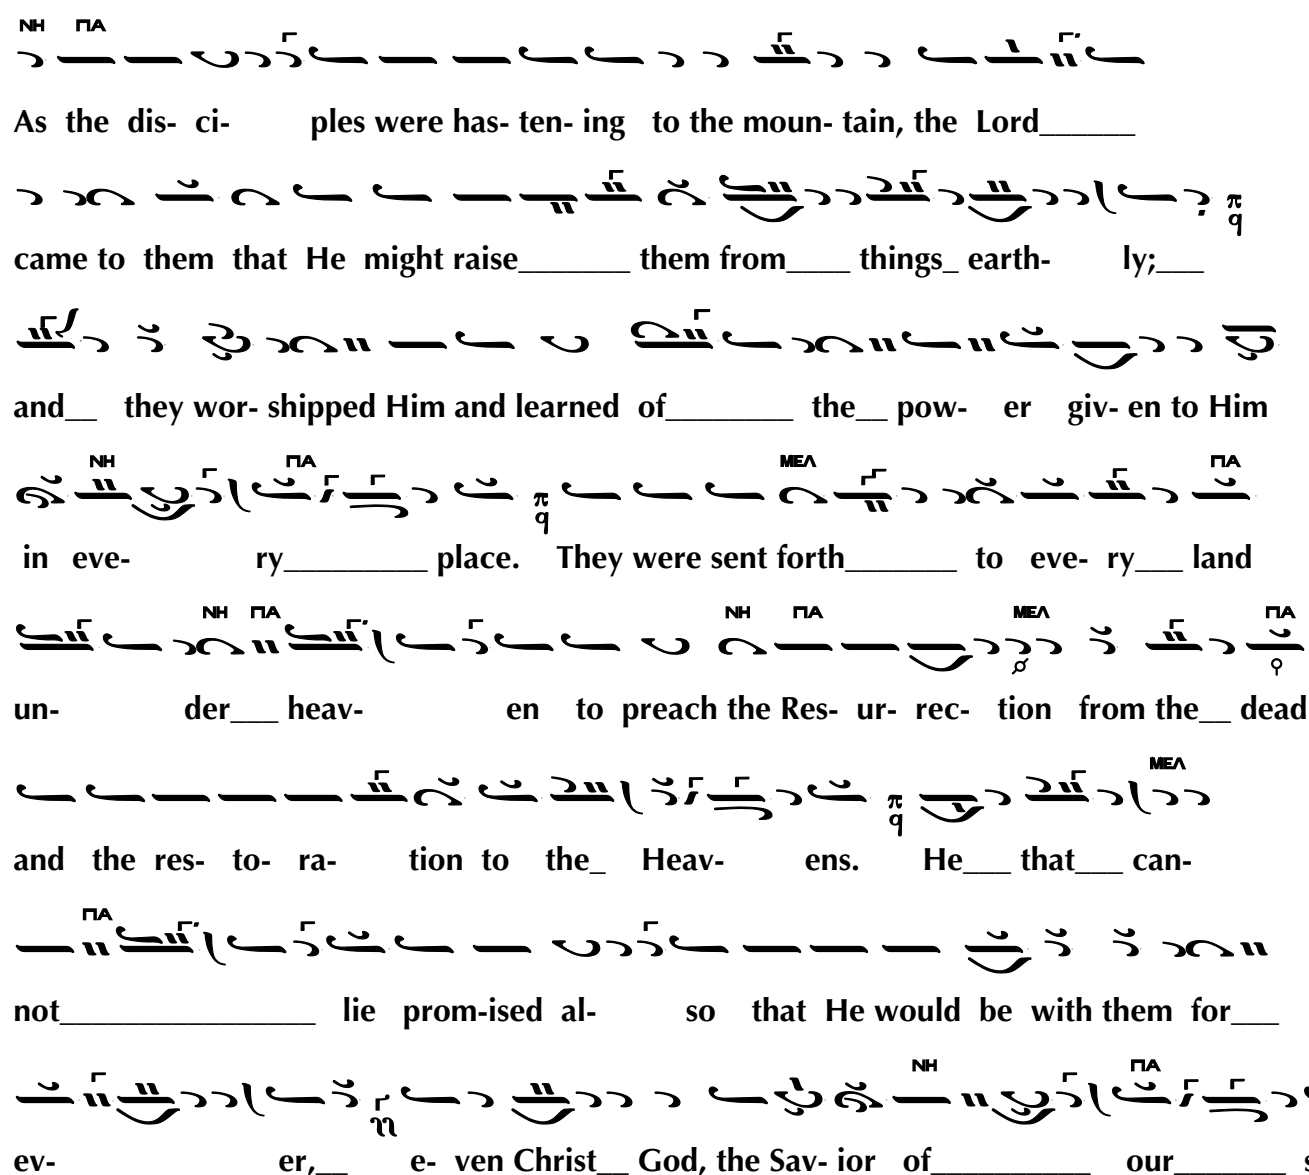 ΝΗ ΠΑ
As the dis- ci- ples were has- ten- ing to the moun- tain, the Lord______
came to them that He might raise_______ them from____ things_ earth- ly;___
π
q
and__ they wor- shipped Him and learned of________ the__ pow- er giv- en to Him
ΝΗ ΠΑ ΜΕΛ ΠΑ
in eve- ry_________ place. They were sent forth_______ to eve- ry___ land
π
q
ΝΗ ΠΑ ΝΗ ΠΑ ΜΕΛ ΠΑ
un- der___ heav- en to preach the Res- ur- rec- tion from the__ dead
ΜΕΛ
and the res- to- ra- tion to the_ Heav- ens. He___ that___ can-
π
q
ΠΑ
not________________ lie prom-ised al- so that He would be with them for___
ΝΗ ΠΑ
ev- er,__ e- ven Christ__ God, the Sav- ior of__________ our_______ s